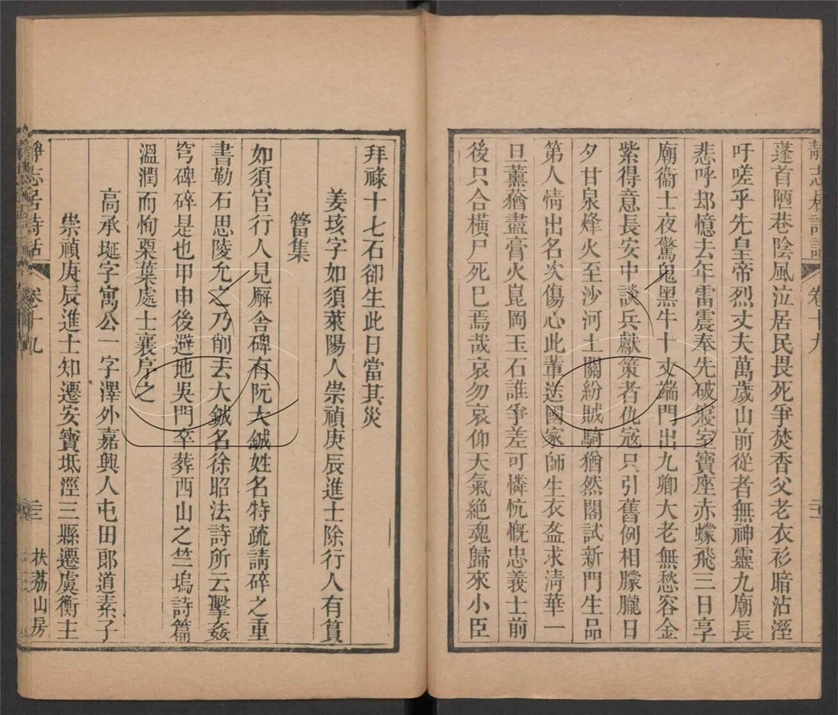 靜志居詩話 卷十九
蓬首陋巷陰風泣居民畏死爭焚香父老衣衫暗沾溼
吁嗟乎先皇帝烈丈夫萬歲山前從者無神靈九廟長
悲呼却憶去年雷震奉先破寢室寶座赤蠓飛三日享
廟衞士夜驚鬼黑牛十丈端門出九卿大老無愁容金
紫得意長安中談兵獻策者仇寇只引舊例相朦朧日
夕甘泉烽火至沙河土關紛賊騎猶然閣試新門生品
第人情出名次傷心此輩送國家師生衣盋求淸華一
旦薰蕕盡膏火崑岡玉石誰爭差可憐忼慨忠義士前
後只合橫尸死已焉哉哀勿哀仰天氣絶魂歸來小臣
拜祿十七石卻生此日當其災
姜垓字如須萊陽人崇禎庚辰進士除行人有篔
簹集
如須官行人見廨舍碑有阮大鋮姓名特疏請碎之重
書勒石思陵允之乃削去大鋮名徐昭法詩所云擊姦
穹碑碎是也甲申後避地吳門卒葬西山之竺塢詩篇
溫潤而恂栗葉處士襄序之
高承埏字寓公一字澤外嘉興人屯田郎道素子
崇禎庚辰進士知遷安寶坻涇三縣遷虞衡主
靜志居詩話 卷十九 扶荔山房